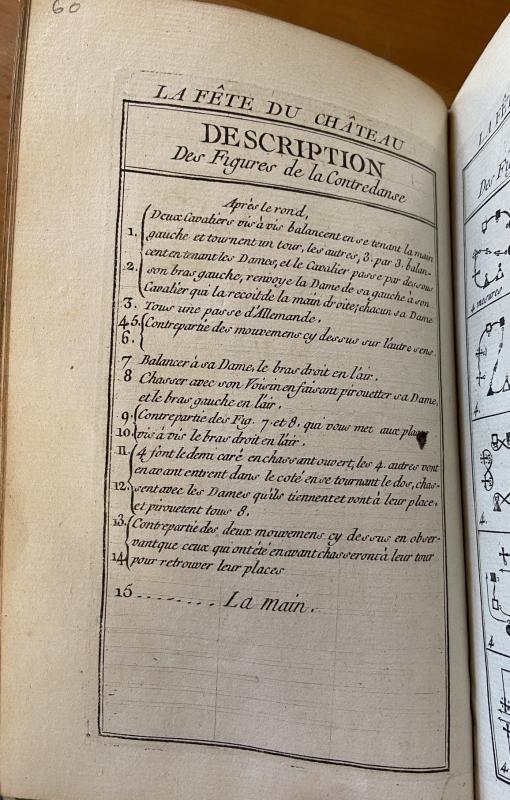 60
LA FÊTE DU CHÂTEAU
DESCRIPTION
Des Figures de la Contredanse
Après le rond,
1. Deux Cavaliers vis à vis balancent en se tenant la main
gauche et tournent un tour, les autres, 3. par 3. balan-
cent en tenant les Dames, et le Cavalier passe par dessous
2. son bras gauche, renvoye la Dame de sa gauche à son
Cavalier qui la recoit de la main droite; chacun sa Dame
3. Tous une passe d'Allemande.
4 5. Contrepartie des mouvemens cy dessus sur l'autre sens.
6.
7 Balancer à sa Dame, le bras droit en l'air.
8 Chasser avec son Voisin en faisant pirouetter sa Dame,
et le bras gauche en l'air.
9. Contrepartie des Fig. 7. et 8. qui vous met aux places
10. vis à vis le bras droit en l'air.
11. 4 font le demi caré en chassant ouvert; les 4. autres vont
en avant entrent dans le coté en se tournant le dos, chas-
12. sent avec les Dames qu'ils tiennent et vont à leur place,
et pirouetent tous 8.
13. Contrepartie des deux mouvemens cy dessus en obser-
vant que ceux qui ont été en avant chasseront à leur tour
14 pour retrouver leur places
15 ......... La main.
LA FÊ
Des Fi
4. mesures
4.
4.
4.
4.